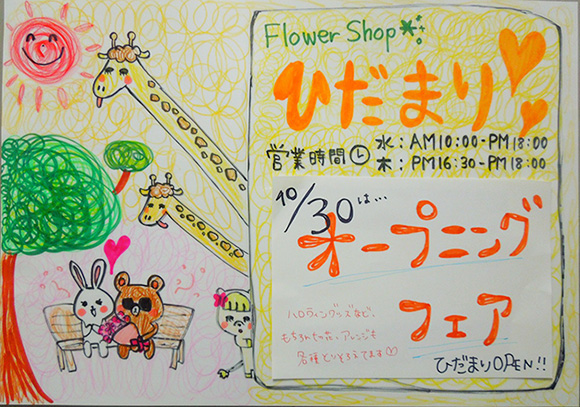 Flower Shop
ひだまり
営業時間 水：AM10:00-PM18:00
木：PM16:30-PM18:00
10/30は…
オープニング
フェア
ハロウィングッズなど、
もちろん花、アレンジも
各種とりそろえてます♡
ひだまりOPEN!!